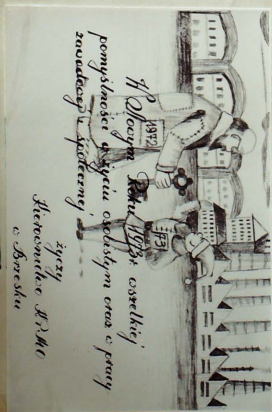 W Nowym Roku 1973r. wszelkiej
pomyślności w życiu osobistym oraz w pracy
zawodowej i społecznej
życzy
Kierownictwo KPMO
w Brzesku
1972
1973